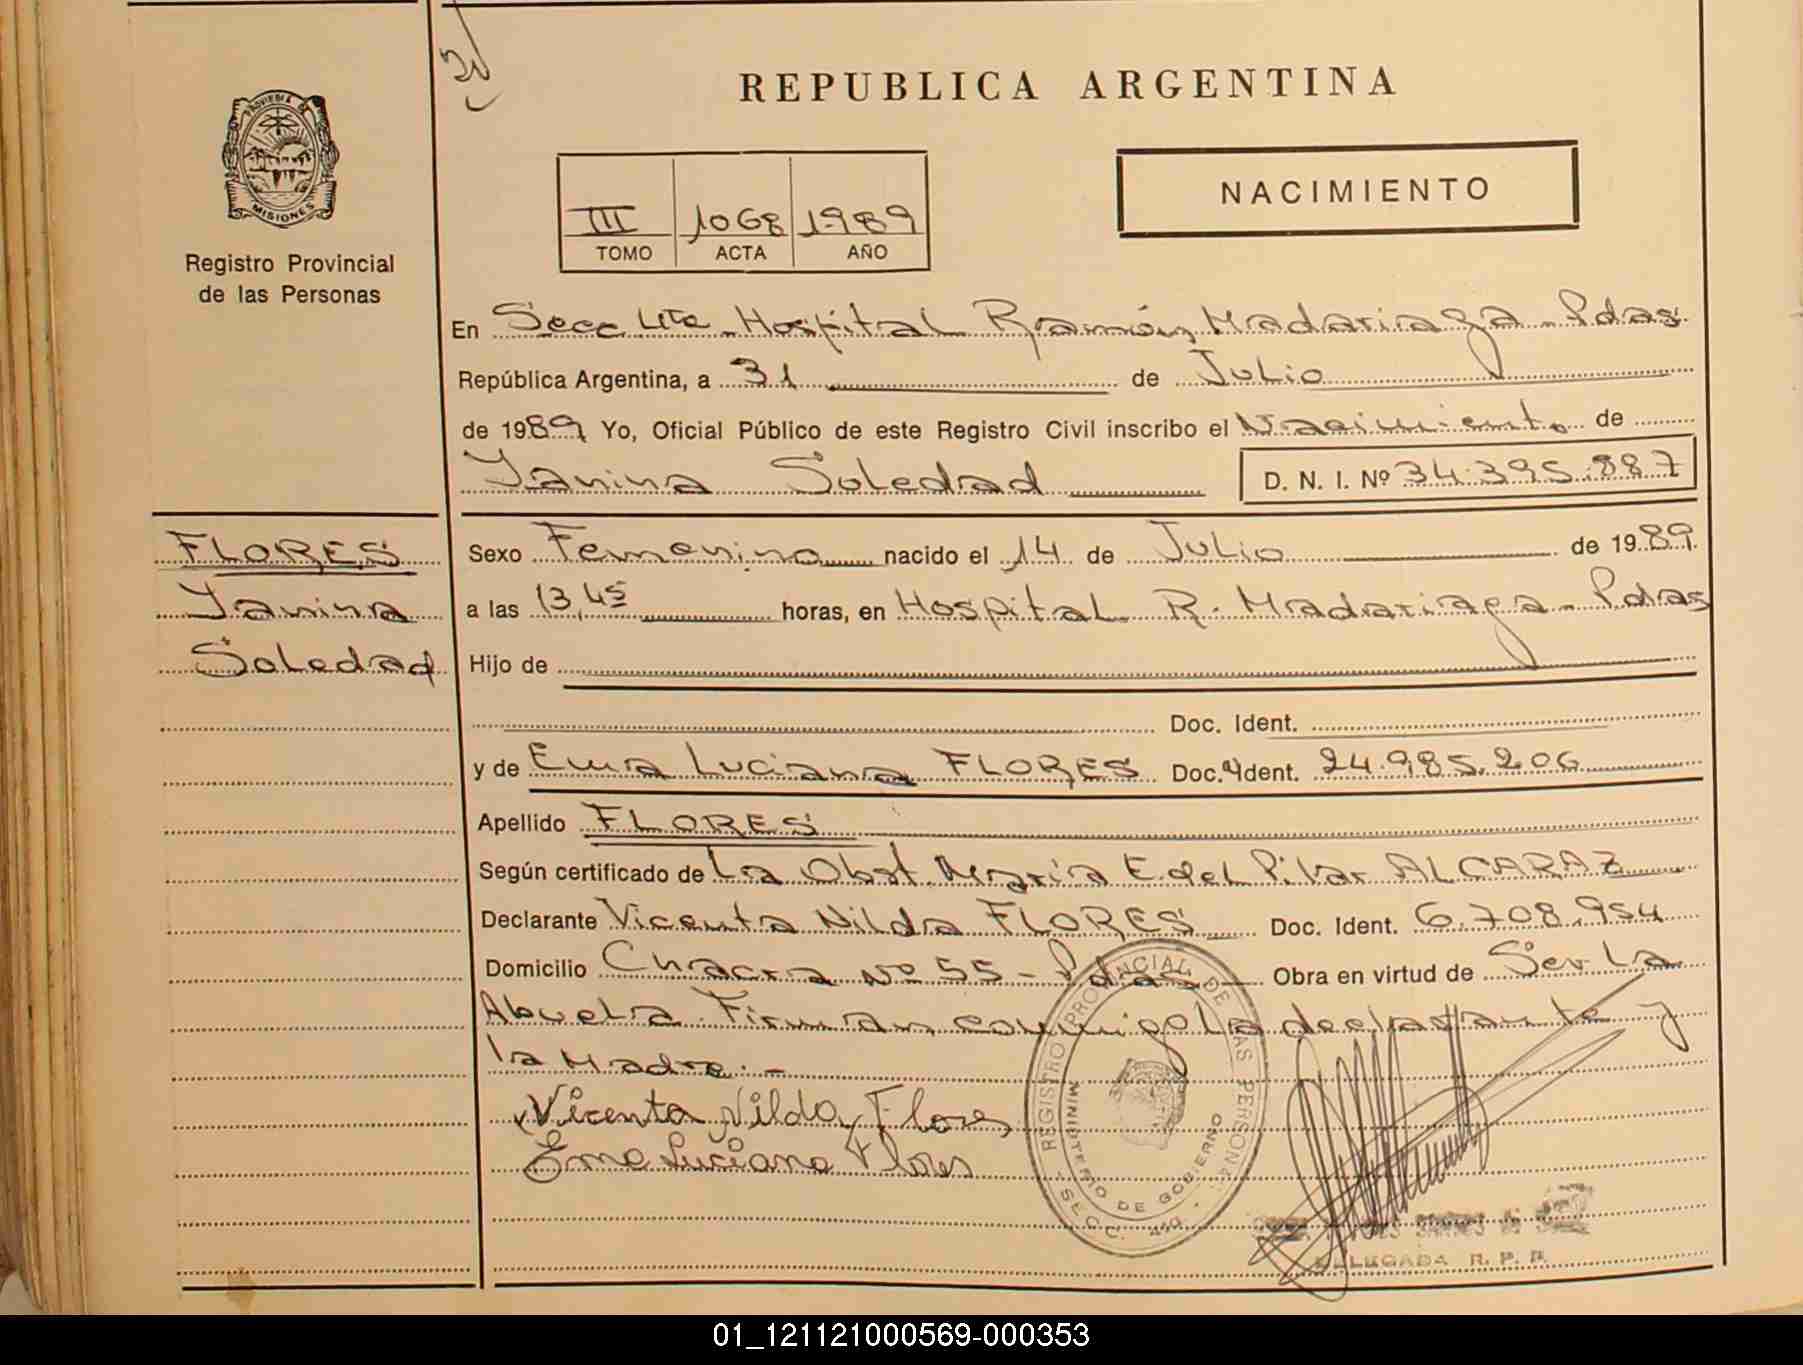 REPUBLICA ARGENTINA
PROVINCIA DE
MISIONES
Registro Provincial
de las Personas
NACIMIENTO
III 1068 1989
TOMO ACTA AÑO
En Secc 4ta - Hospital Ramón Madariaga - Pdas.
República Argentina, a 31 de Julio
de 1989 Yo, Oficial Público de este Registro Civil inscribo el Nacimiento de
Yanina Soledad D. N. I. Nº 34.395.887
FLORES
Yanina
Soledad
Sexo Femenino nacido el 14 de Julio de 1989.
a las 13,45 horas, en Hospital R. Madariaga - Pdas
Hijo de
Doc. Ident.
y de Ema Luciana FLORES Doc. Ident. 24.985.206
Apellido FLORES
Según certificado de La Obst. María E. del Pilar ALCARAZ
Declarante Vicenta Nilda FLORES Doc. Ident. 6.708.954
Domicilio Chacra Nº 55 - Pdas Obra en virtud de Ser La
Abuela. Firman conmigo la declarante y
la Madre. -
Vicenta Nilda Flores
Ema Luciana Flores
REGISTRO PROVINCIAL DE LAS PERSONAS
MINISTERIO DE GOBIERNO
- SECC. 4ta. -
DELEGADA R. P. P.
01_121121000569-000353